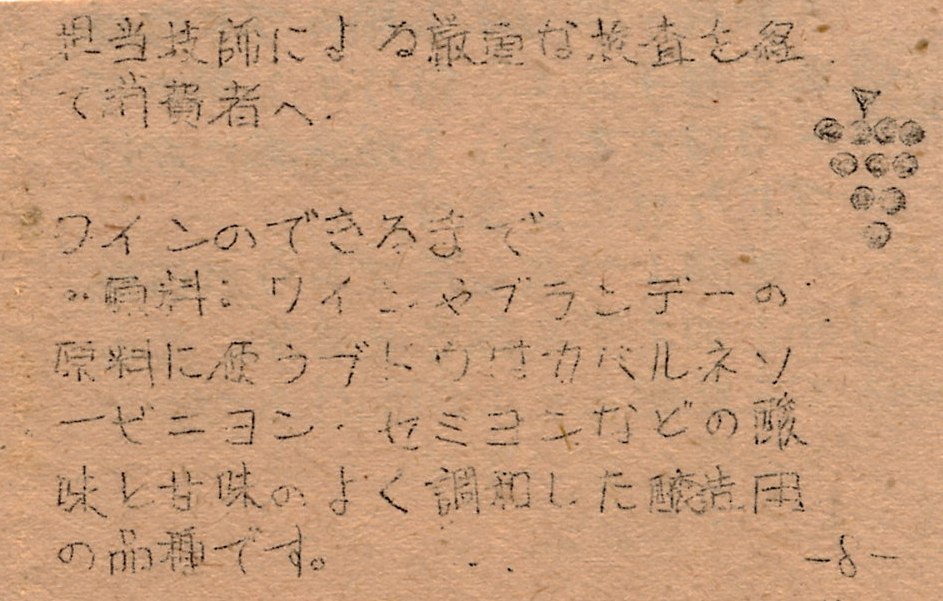 担当技師による厳重な検査を経
て消費者へ.
ワインのできるまで
◦ 原料: ワインやブランデーの
原料に使うブドウはカベルネソ
ービニヨン・セミヨンなどの酸
味と甘味のよく調和した醸造用
の品種です。
-8-